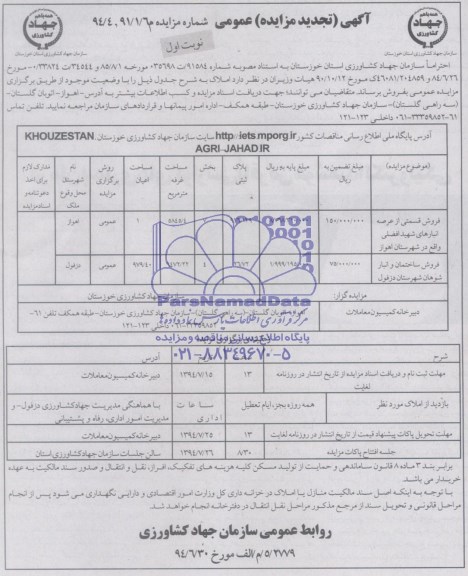 آگهی (تجدید مزایده) عمومی شماره مزایده م/۹۴/۴،۹۱/۱/۶
نوبت اول
جهاد
سازمان جهاد کشاورزی استان خوزستان
سازمان جهاد کشاورزی استان خوزستان
احتراماً سازمان جهاد کشاورزی استان خوزستان به استناد مصوبه شماره ۹۱۵۸۴/ت ۳۵۶۹۸ه مورخه ۸۵/۸/۱ و ۳۴۵۴۴/ت ۰/۳۳۸۲۴ مورخ
۸۴/۶/۲۶ و ۲۰۴۸۵۹/ت۴۶۰۸۱ک مورخ ۹۰/۱۰/۱۲ هیات وزیران در نظر دارد املاک به شرح جدول ذیل را با وضعیت موجود از طریق برگزاری
مزایده عمومی بفروش برساند. متقاضیان می توانند؛ جهت دریافت اسناد مزایده و کسب اطلاعات بیشتر به آدرس- اهواز- اتوبان گلستان-
(سه راهی گلستان)- سازمان جهاد کشاورزی خوزستان- طبقه همکف- اداره امور پیمانها و قراردادهای سازمان مراجعه نمایید. تلفن تماس
۶۱-۳۳۳۵۹۸۵۲-۰۶۱ داخلی ۱۲۳-۱۲۱
آدرس پایگاه ملی اطلاع رسانی مناقصات کشور http://iets.mporg.ir سایت سازمان جهاد کشاورزی خوزستان. KHOUZESTAN.
AGRI-JAHAD.IR
(موضوع مزایده) مبلغ تضمین به ریال مبلغ پایه به ریال پلاک ثبتی بخش مساحت عرصه مترمربع مساحت اعیان روش برگزاری مزایده نام شهرستان محل وقوع ملک مدارک لازم برای اخذ دعوتنامه و اسناد مزایده
فروش قسمتی از عرصه انبارهای شهید افضلی واقع در شهرستان اهواز ۱۵۰/۰۰۰/۰۰۰ عمومی اهواز
فروش ساختمان و انبار شوهان شهرستان دزفول ۷۵/۰۰۰/۰۰۰ ۴ ۹۷۹/۴۰ عمومی دزفول
مزایده گزار: سازمان جهاد کشاورزی خوزستان
اهواز- اتوبان گلستان- (سه راهی گلستان)- سازمان جهاد کشاورزی خوزستان- طبقه همکف تلفن ۶۱-
داخلی ۱۲۳-۱۲۱
ParsNamadData
مرکز فرآوری اطلاعات پارس نماد داده ها
پایگاه اطلاع رسانی مناقصه و مزایده
۰۲۱-۸۸۳۴۹۶۷۰-۵
شرح آدرس
مهلت ثبت نام و دریافت اسناد مزایده از تاریخ انتشار در روزنامه لغایت ۱۳ ۱۳۹۴/۷/۱۵ دبیرخانه کمیسیون معاملات
بازدید از املاک مورد نظر همه روزه بجز، ایام تعطیل ساعات اداری با هماهنگی مدیریت جهاد کشاورزی دزفول- و مدیریت امور اداری، رفاه و پشتیبانی
مهلت تحویل پاکات پیشنهاد قیمت از تاریخ انتشار در روزنامه لغایت ۱۳ ۱۳۹۴/۷/۲۵ دبیرخانه کمیسیون معاملات
جلسه افتتاح پاکات مزایده ۸/۳۰ ۱۳۹۴/۷/۲۶ سالن جلسات سازمان جهاد کشاورزی استان
برابر بند ۳ ماده ۸ قانون ساماندهی و حمایت از تولید مسکن کلیه هزینه های تفکیک، افراز، نقل و انتقال و صدور سند مالکیت به عهده
خریدار می باشد.
با توجه به اینکه اصل سند مالکیت منازل یا املاک در خزانه داری کل وزارت امور اقتصادی و دارایی نگهداری می شود پس از انجام
مراحل قانونی و تحویل سند از مرجع مذکور مراحل نقل انتقال در دفترخانه انجام خواهد شد.
روابط عمومی سازمان جهاد کشاورزی
۵/۲۷۷۹/م/الف مورخ ۹۴/۶/۳۰